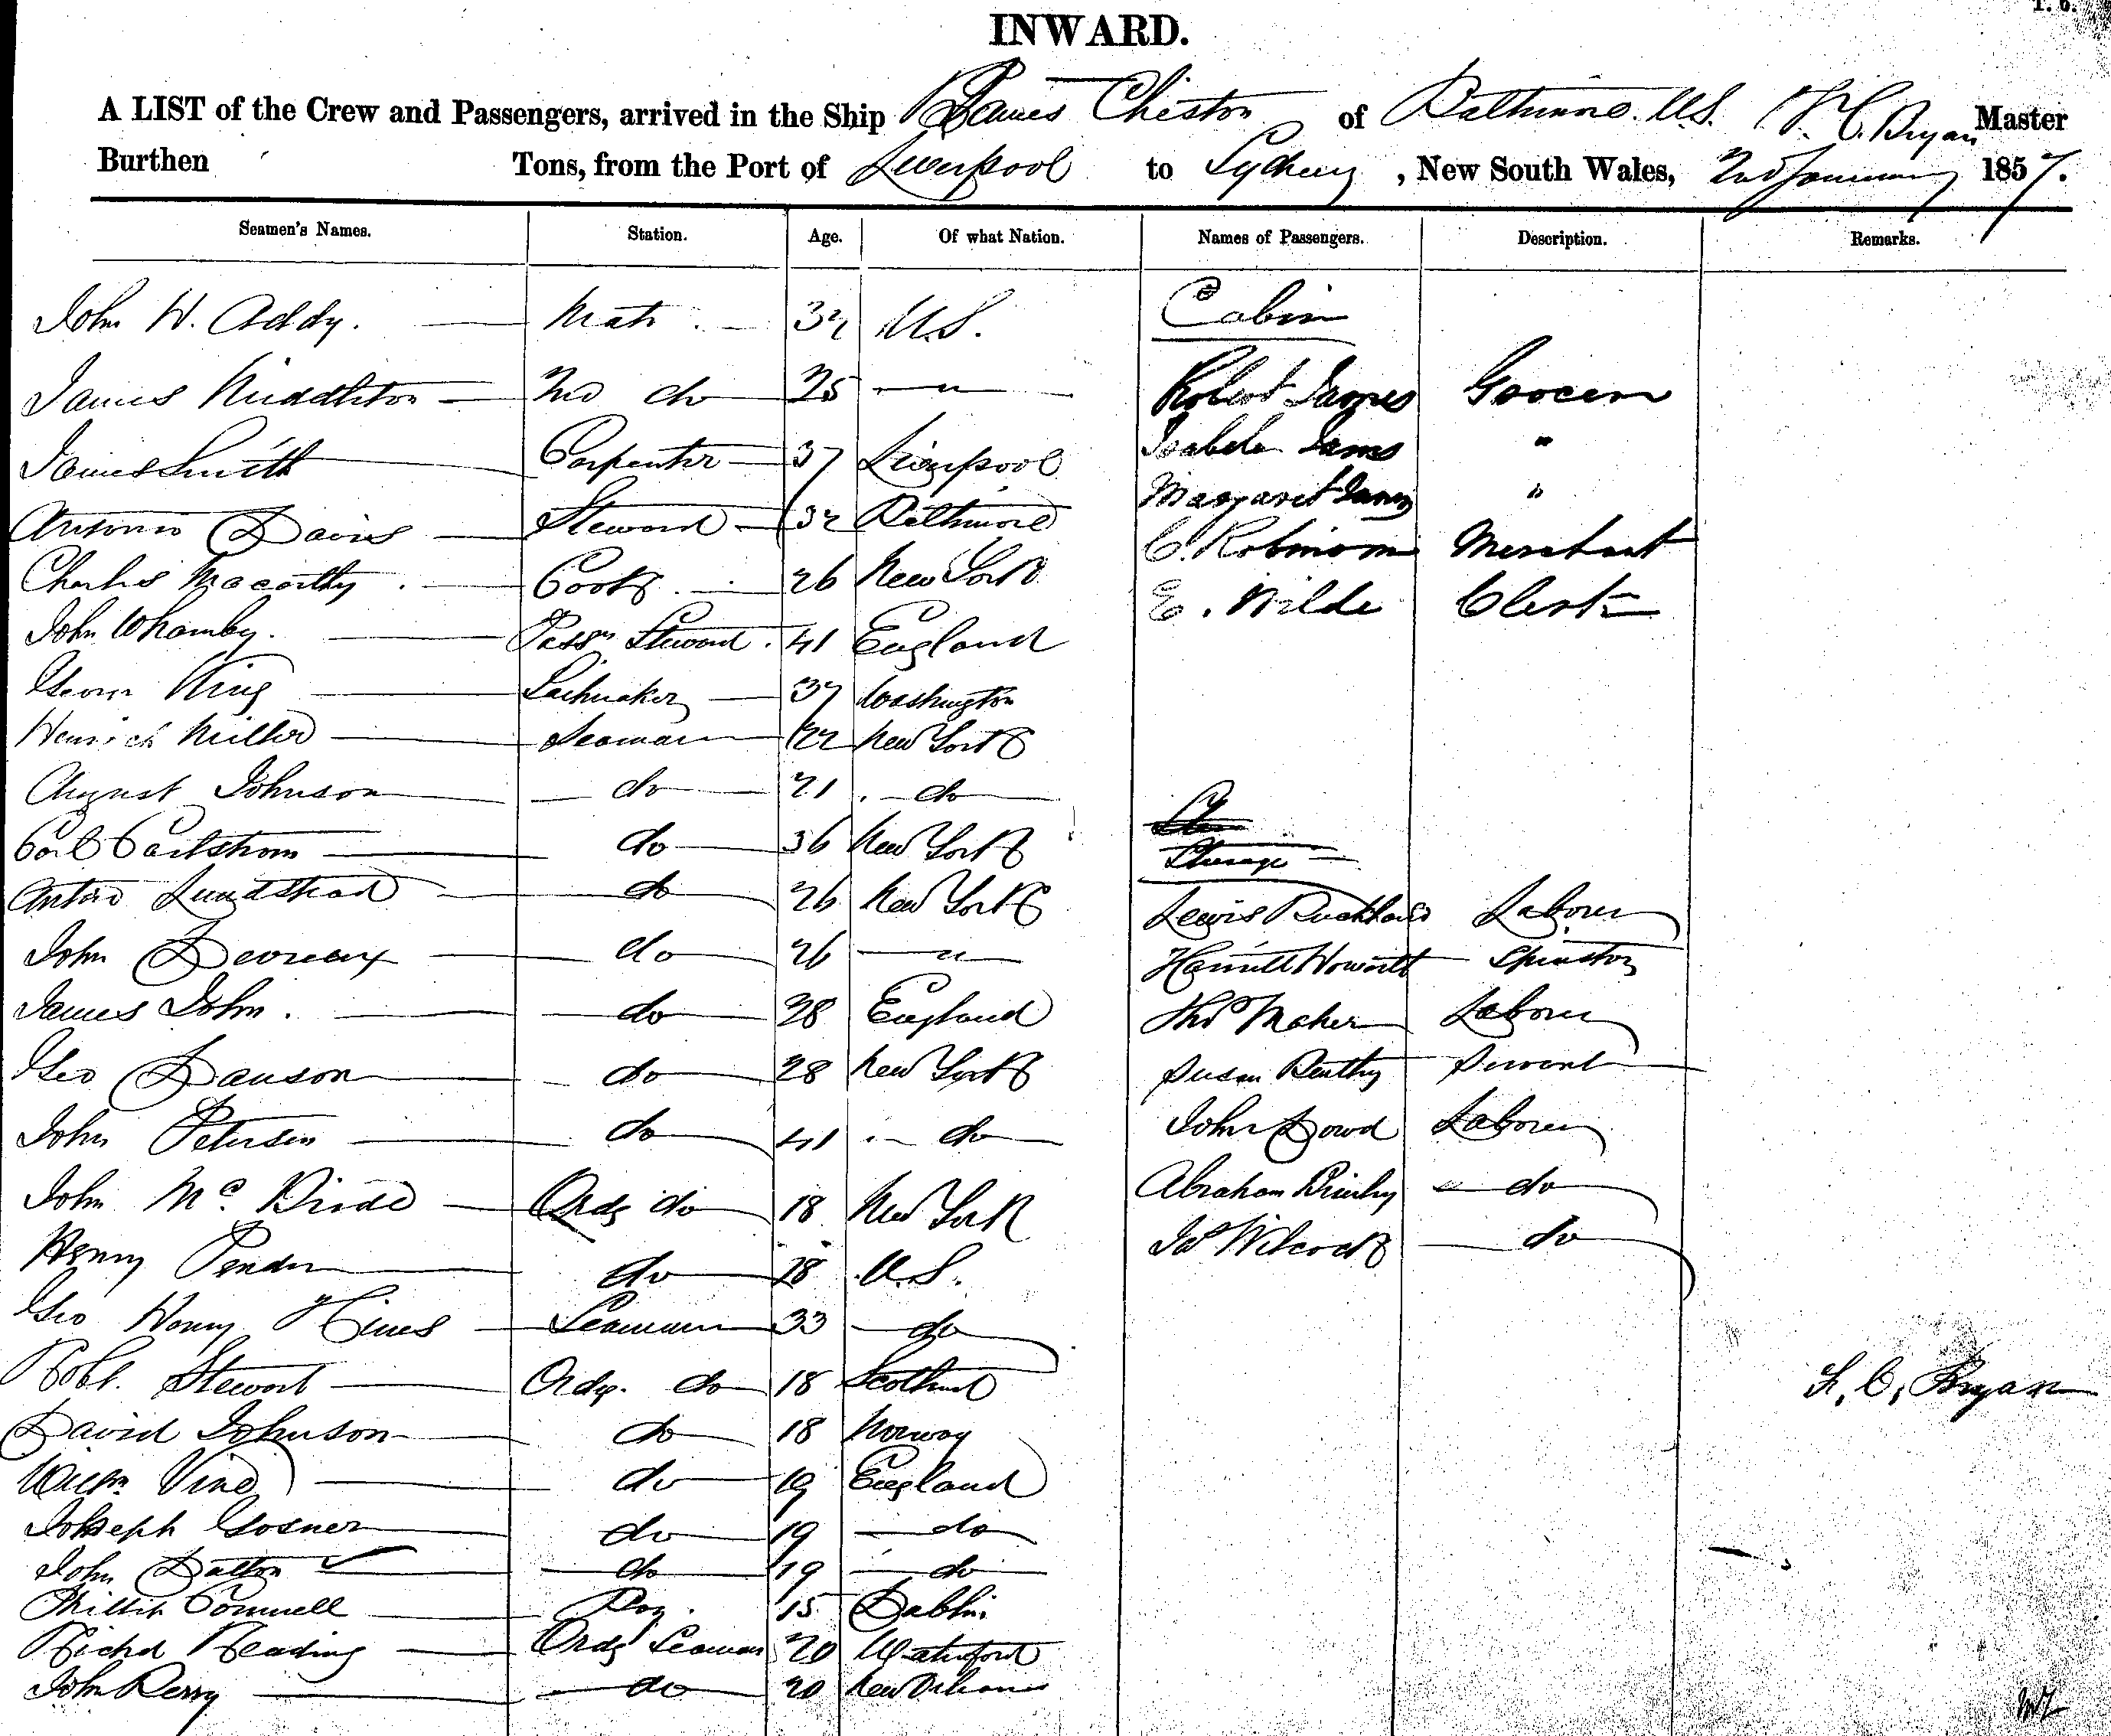 INWARD.
A LIST of the Crew and Passengers, arrived in the Ship James Cheston of Baltimore. U.S. C. Bryan Master
Burthen Tons, from the Port of Liverpool to Sydney, New South Wales, 2nd January 1857.
Seamen's Names. Station. Age. Of what Nation. Names of Passengers. Description. Remarks.
John W. Addy. Mate 32 U.S. Cabin
James Middleton 2nd do 25 — " Robert James Grocer
James Smith Carpenter 37 Liverpool Isabela James "
Antonio Davis Steward 32 Baltimore Margaret James "
Charles Macarthy Cook 26 New York C. Robinson Merchant
John Whamby. Passr Steward 41 England E. Wilde Clerk
George King Sailmaker 37 Washington
Henrich Miller Seaman 22 New York
August Johnson do 21 do
Carl Carlstrom do 36 New York Steerage
Lundstrad do 26 New York Lewis Labourer
John Devreaux do 26 — " Harriett Howarth Spinster
James John. do 28 England Thos Maher Labourer
Geo Dawson do 28 New York Susan Servant
John Petersen do 41 do John Dowd Labourer
John Mc Bride Ordy do 18 New York Abraham Brierley do
Henry Pender do 28 U.S. Jas Wilcock do
Geo Henry Hines Seaman 33 do
Robt. Stewart Ordy. do 18 Scotland F. C. Bryan
David Johnson do 18 Norway
Willm Vine do 19 England
Joseph Gosner do 19 do
John Dalton do 19 do
Phillip Connell Boy. 15 Dublin
Richd Reading Ordy Seaman 20 Waterford
John Perry do 20 New Orleans